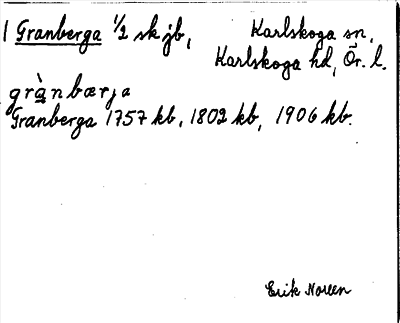 1 Granberga 1/2 sk jb, Karlskoga sn,
Karlskoga hd, Ör. l.
grànbærja
Granberga 1757 kb, 1802 kb, 1906 kb.
Erik Noreen